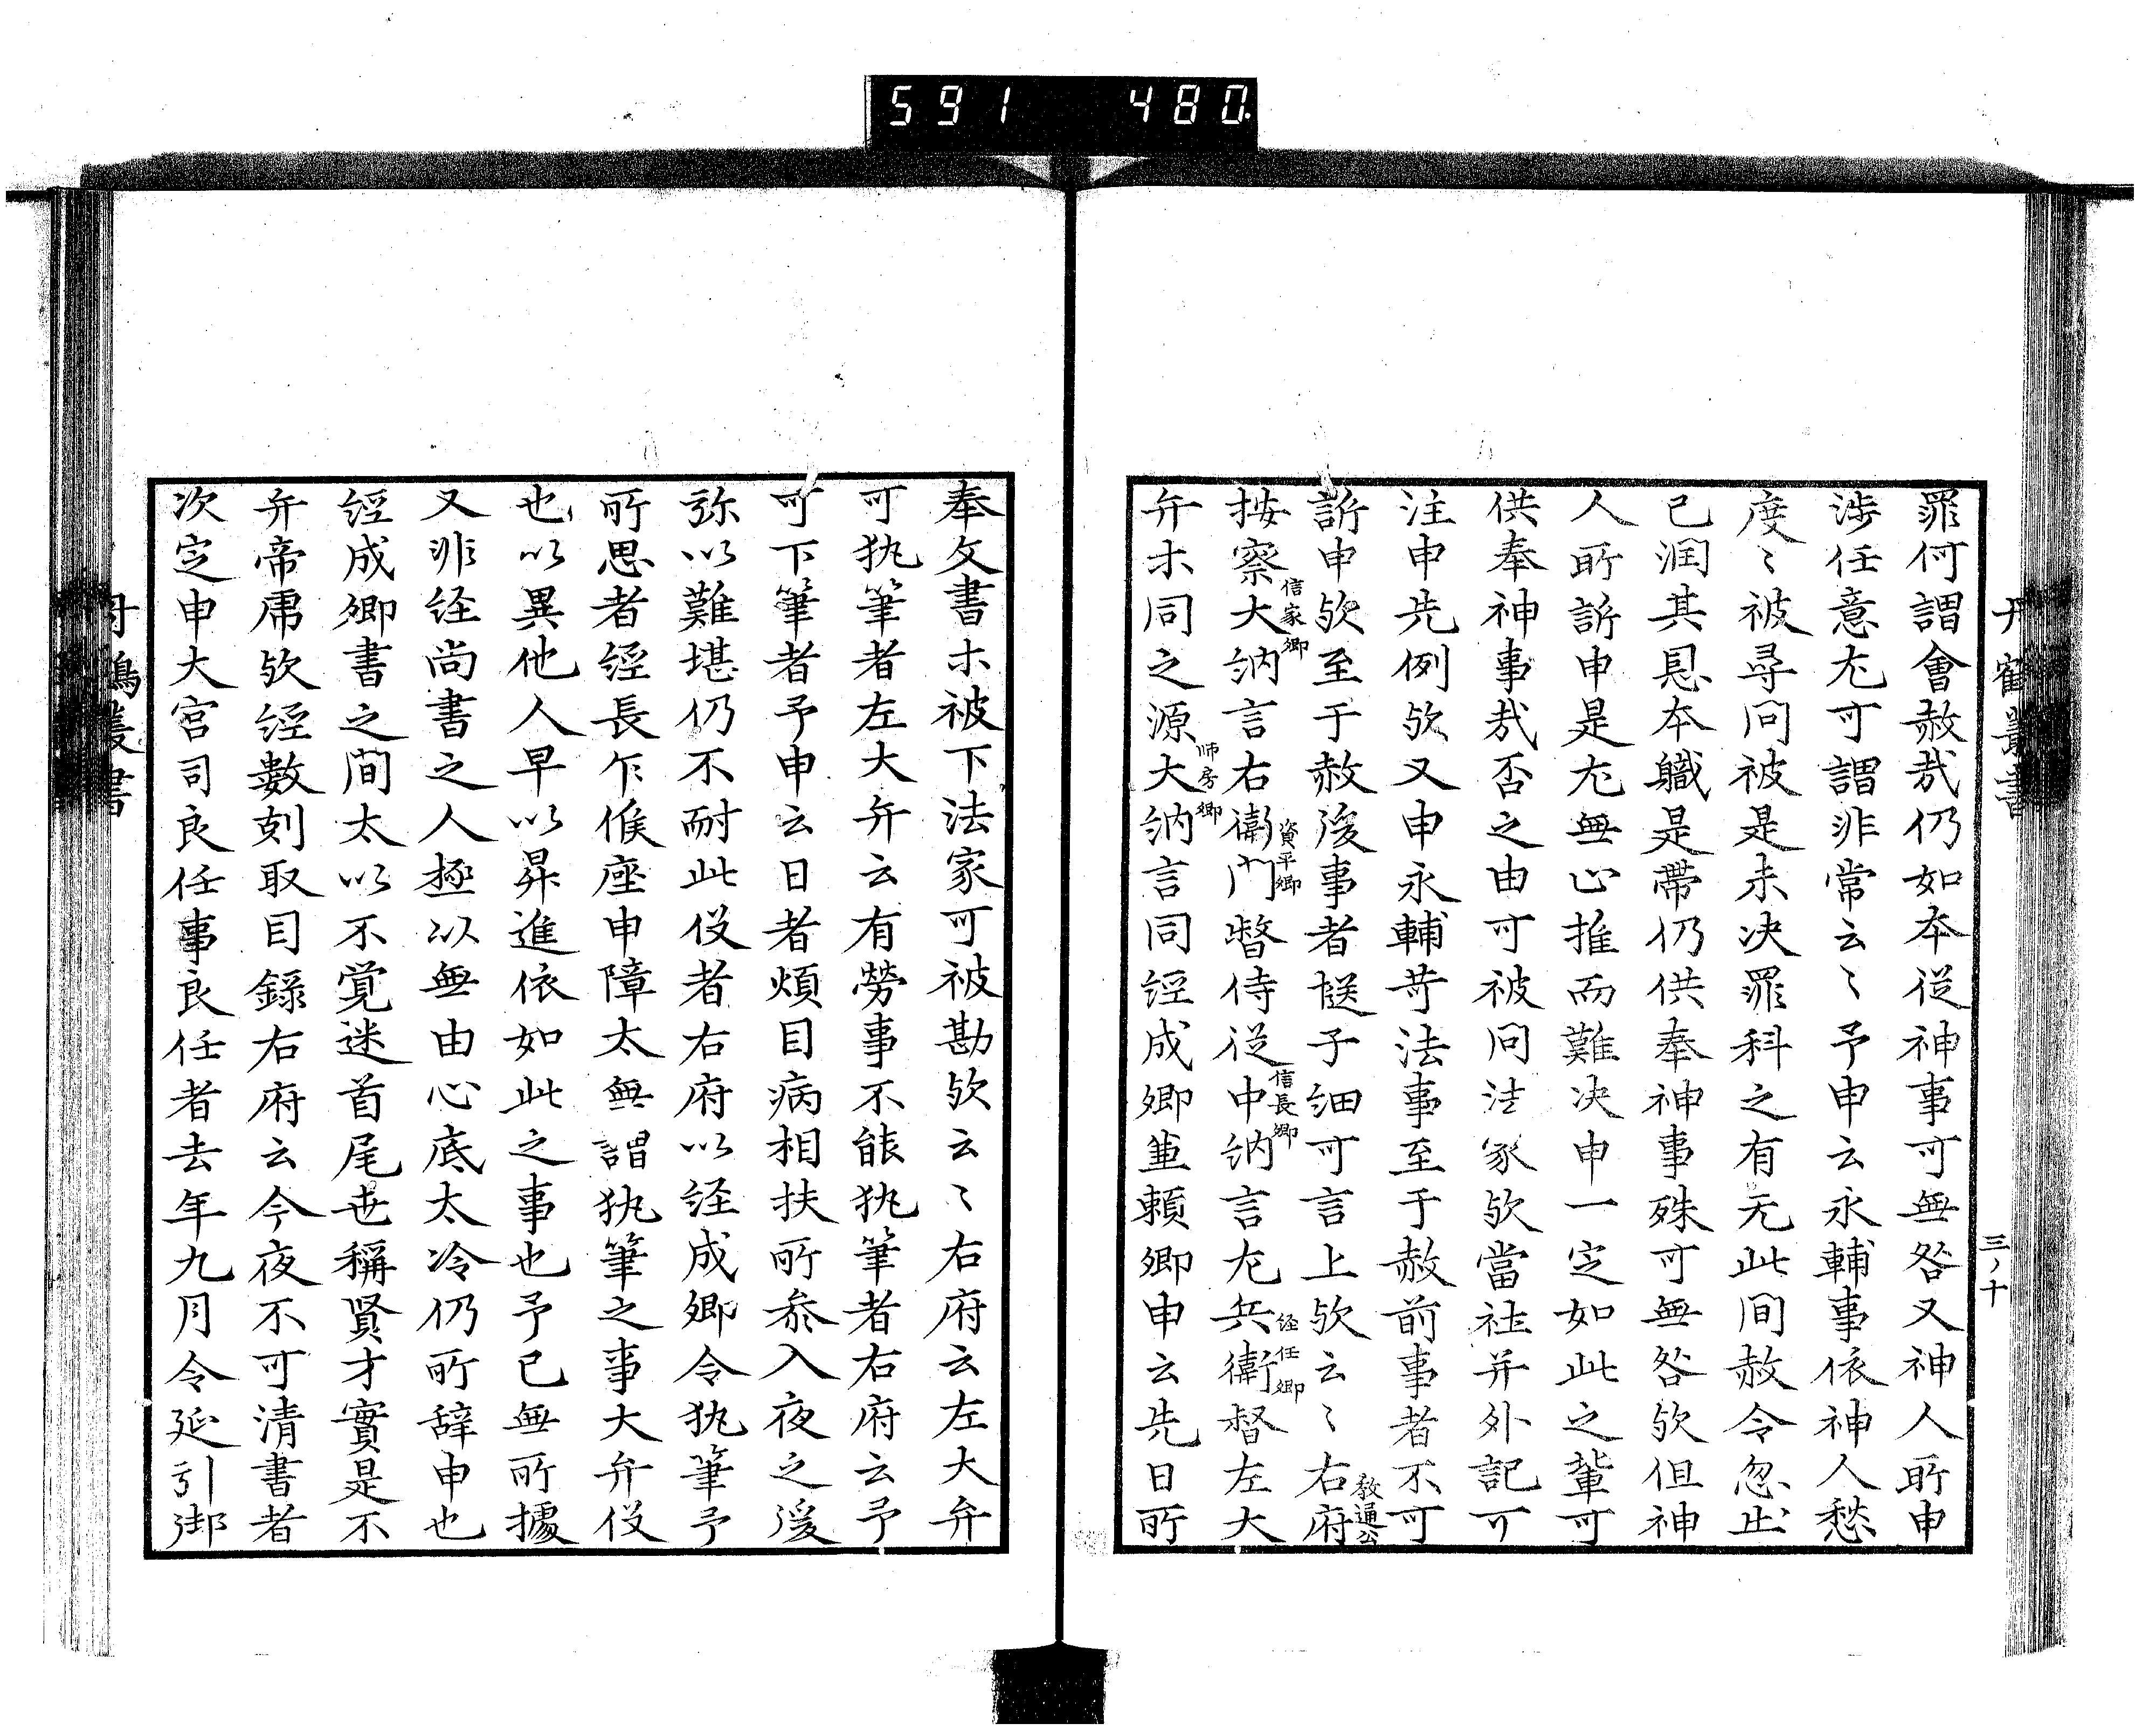 591 480
丹鶴叢書
三ノ十
罪何謂會赦哉仍如本從神事可無咎又神人所申
渉任意尤可謂非常云〻予申云永輔事依神人愁
度〻被尋問被是未决罪科之有无此間赦令忽出
已潤其恩本軄是帶仍供奉神事殊可無咎欤但神
人所訴申是尤無心推而難决申一定如此之輩可
供奉神事哉否之由可被問法家欤當社并外記可
注申先例欤又申永輔苛法事至于赦前事者不可
訴申欤至于赦後事者㨾子細可言上欤云〻右府
教通公
按察大納言右衛門督侍從中納言尤兵衛督左大
信家卿
資平卿
信長卿
経任卿
弁ホ同之源大納言同経成卿兼頼卿申云先日所
師房卿
奉文書ホ被下法家可被勘欤云〻右府云左大弁
可执筆者左大弁云有勞事不能执筆者右府云予
可下筆者予申云日者煩目病相扶所叅入夜之後
弥以難堪仍不耐此役者右府以経成卿令执筆予
所思者経長乍候座申障太無謂执筆之事大弁役
也以異他人早以昇進依如此之事也予已無所據
又非経尚書之人極以無由心底太冷仍所辞申也
経成卿書之間太以不覚迷首尾世稱賢才實是不
弁帝席欤経數刻取目録右府云今夜不可清書者
次定申大宮司良任事良任者去年九月令延引御